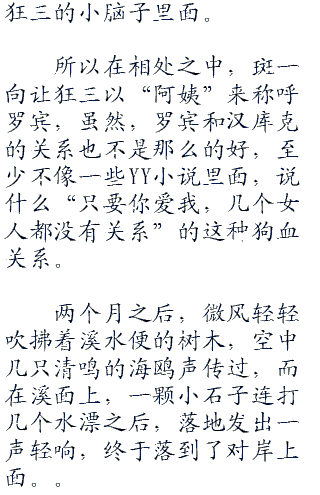 狂三的小脑子里面。
所以在相处之中，斑一
向让狂三以“阿姨”来称呼
罗宾，虽然，罗宾和汉库克
的关系也不是那么的好，至
少不像一些YY小说里面，说
什么“只要你爱我，几个女
人都没有关系”的这种狗血
关系。
两个月之后，微风轻轻
吹拂着溪水便的树木，空中
几只清鸣的海鸥声传过，而
在溪面上，一颗小石子连打
几个水漂之后，落地发出一
声轻响，终于落到了对岸上
面。。